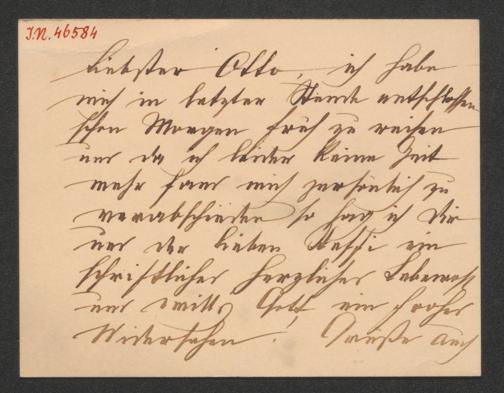 I.N. 46584
Liebster Otto, ich habe
mich in letzter Stunde entschlossen
schon Morgen früh zu reisen
und da ich leider keine Zeit
mehr fand mich persönlich zu
verabschieden so sag ich Dir
und der lieben Steffi ein
schriftliches herzliches Lebewohl
und will's Gott ein frohes
Wiedersehen! Grüße auch